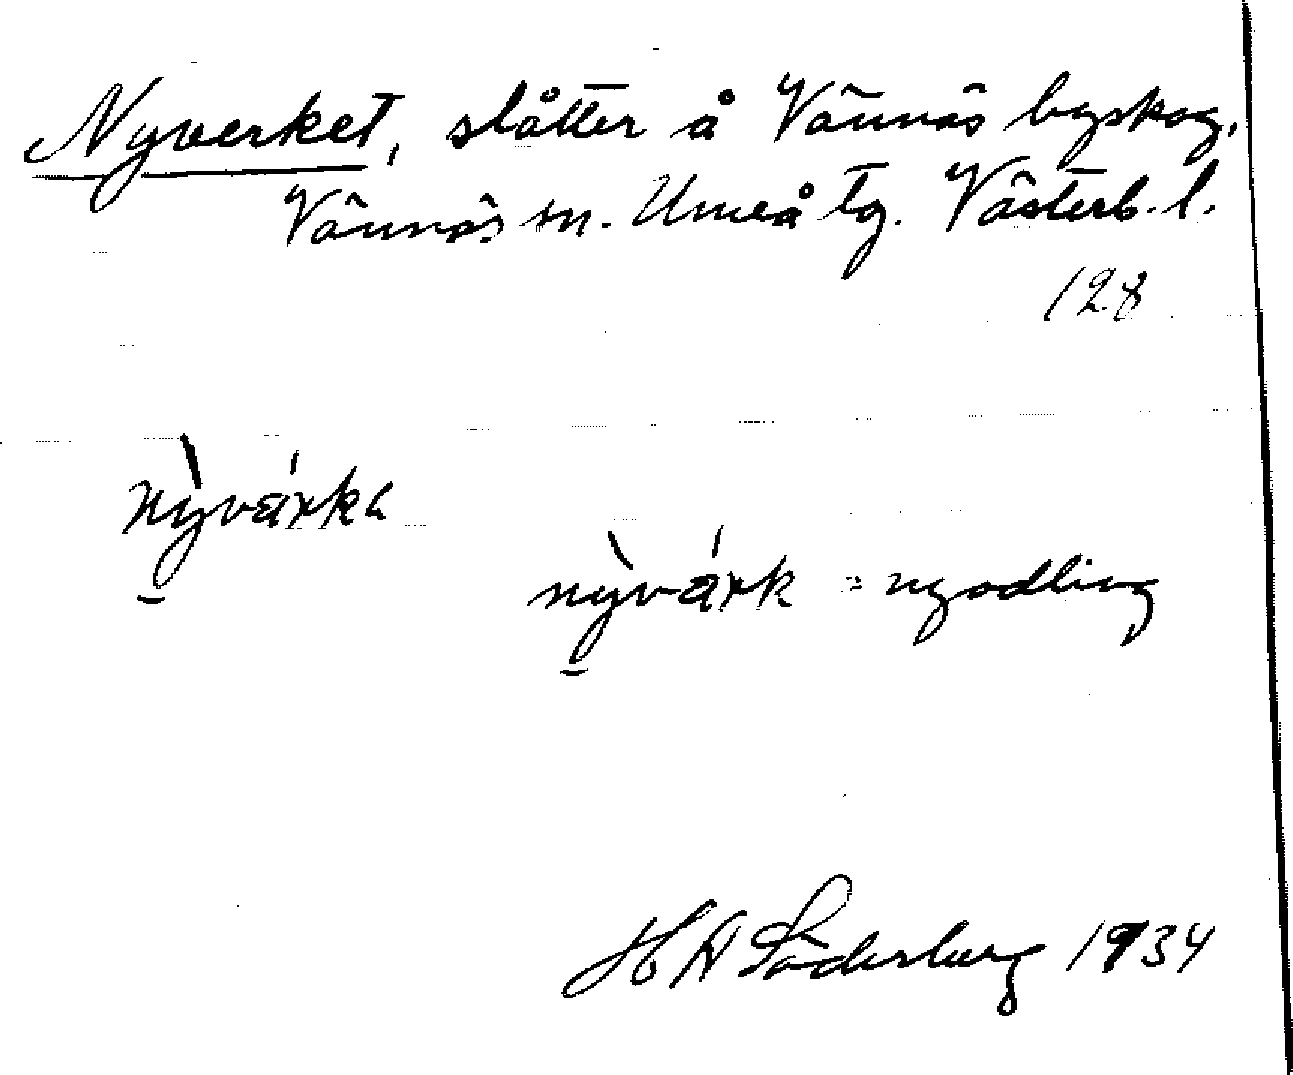 Nyverket, slåtter å Vännäs byskog,
Vännäs sn. Umeå tg. Västerb. l.
128
nỳvárka
nỳvárk = nyodling
H A Söderberg 1934